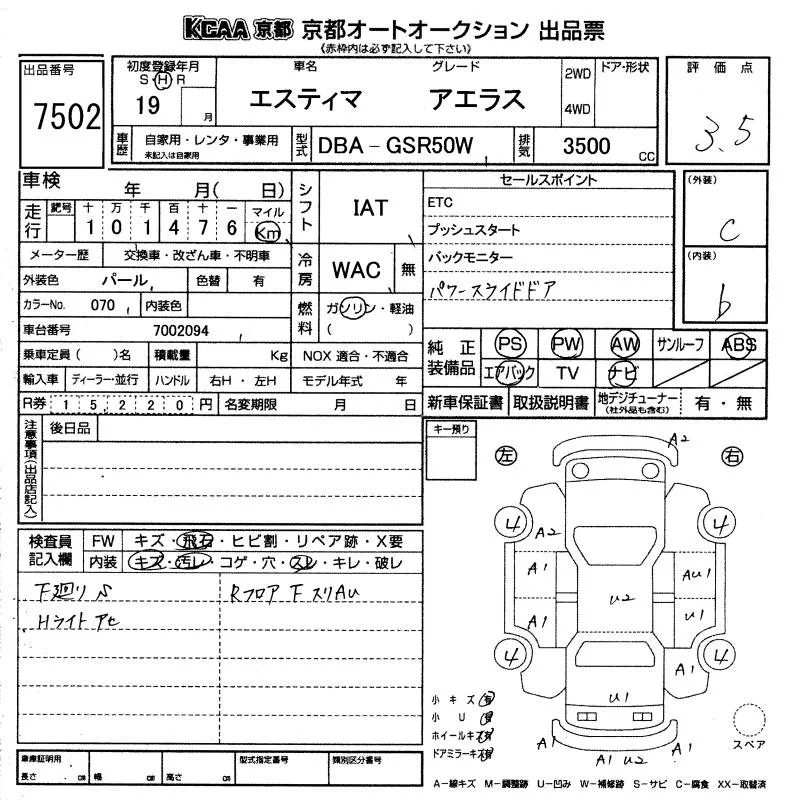 KCAA 京都 京都オートオークション 出品票
《赤枠内は必ず記入して下さい》
出品番号
7502
初度登録年月
S H R
19 月
車名
エスティマ
グレード
アエラス
2WD
4WD
ドア・形状
評価点
3.5
車歴
自家用・レンタ・事業用
未記入は自家用
型式
DBA－GSR50W
排気
3500 CC
車検 年 月( 日)
走行
記号 十 万 千 百 十 一 マイル
1 0 1 4 7 6 Km
シフト
IAT
セールスポイント
ETC
プッシュスタート
バックモニター
パワースライドドア
(外装)
C
(内装)
b
メーター歴 交換車・改ざん車・不明車
外装色 パール 色替 有
冷房
WAC 無
カラーNo. 070 内装色
燃料
ガソリン・軽油
( )
車台番号 7002094
乗車定員( )名 積載量 Kg NOX 適合・不適合
輸入車 ディーラー・並行 ハンドル 右H・左H モデル年式 年
R券 15,220円 名変期限 月 日
純正装備品
PS PW AW サンルーフ ABS
エアバック TV ナビ
新車保証書 取扱説明書 地デジチューナー (社外品も含む) 有・無
注意事項(出品店記入)
後日品
キー預り
左 右
検査員記入欄
FW キズ・飛石・ヒビ割・リペア跡・X要
内装 キズ・汚レ・コゲ・穴・スレ・キレ・破レ
下廻り S
Hライト アセ
Rフロア下スリAU
A2
4 4
A2
A1 AU1
U2
A1 U1
4 4
A1
U1
A1 A1 U2 A1
小キズ 有
小 U 有
ホイールキズ 有
ドアミラーキズ 有
スペア
車庫証明用
長さ cm 幅 cm 高さ cm
型式指定番号
類別区分番号
A－線キズ M－調整跡 U－凹み W－補修跡 S－サビ C－腐食 XX－取替済